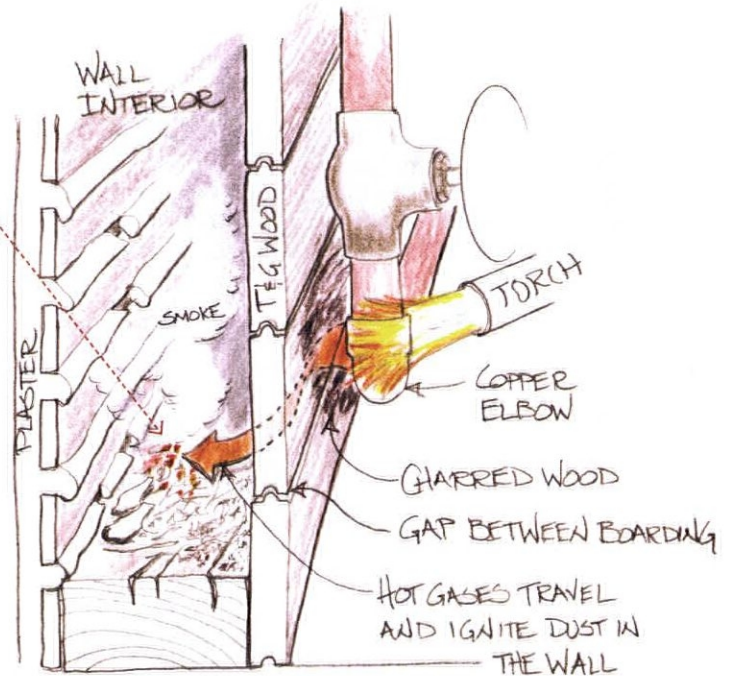 WALL
INTERIOR
T&G WOOD
SMOKE
TORCH
PLASTER
COPPER
ELBOW
CHARRED WOOD
GAP BETWEEN BOARDING
HOT GASES TRAVEL
AND IGNITE DUST IN
THE WALL